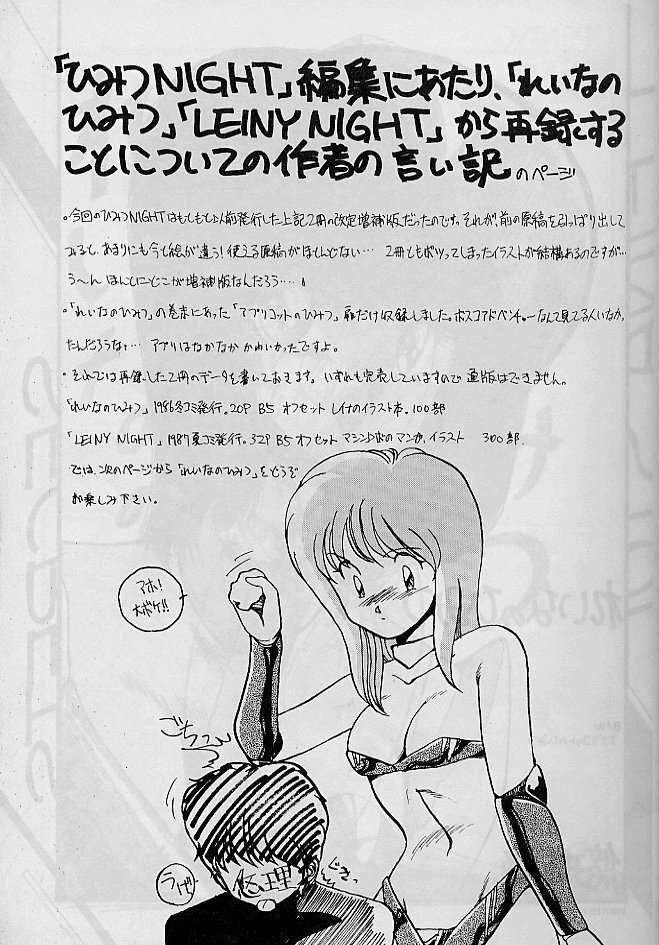 「ひみつNIGHT」編集にあたり、「れいなの
ひみつ」「LEINY NIGHT」から再録する
ことについての作者の言い訳のページ
・今回のひみつNIGHTはもともと以前発行した上記2冊の改定増補版だったのです。それが前の原稿を引っぱり出して
みると、あまりにも今と絵が違う!使える原稿がほとんどない… 2冊ともボツってしまったイラストが結構あるのですが…
う〜んほんとにどこが増補版なんだろう…。
・「れいなのひみつ」の巻末にあった「アプリコットのひみつ」扉だけ収録しました。ボスコアドベンチャーなんて見てる人いなか
ったんだろうなァ… アプリはなかなかかわいかったですよ。
・それでは再録した2冊のデータを書いておきます。いずれも完売していますので通販はできません。
「れいなのひみつ」1986冬コミ発行。20P B5 オフセット レイナのイラスト本。100部
「LEINY NIGHT」1987夏コミ発行。32P B5 オフセット マシンロボのマンガ、イラスト 300部
では、次のページから「れいなのひみつ」をどうぞ
お楽しみ下さい。
アホ!
大ボケ!!
ごちっ
うげ
悠理
ぐきっ